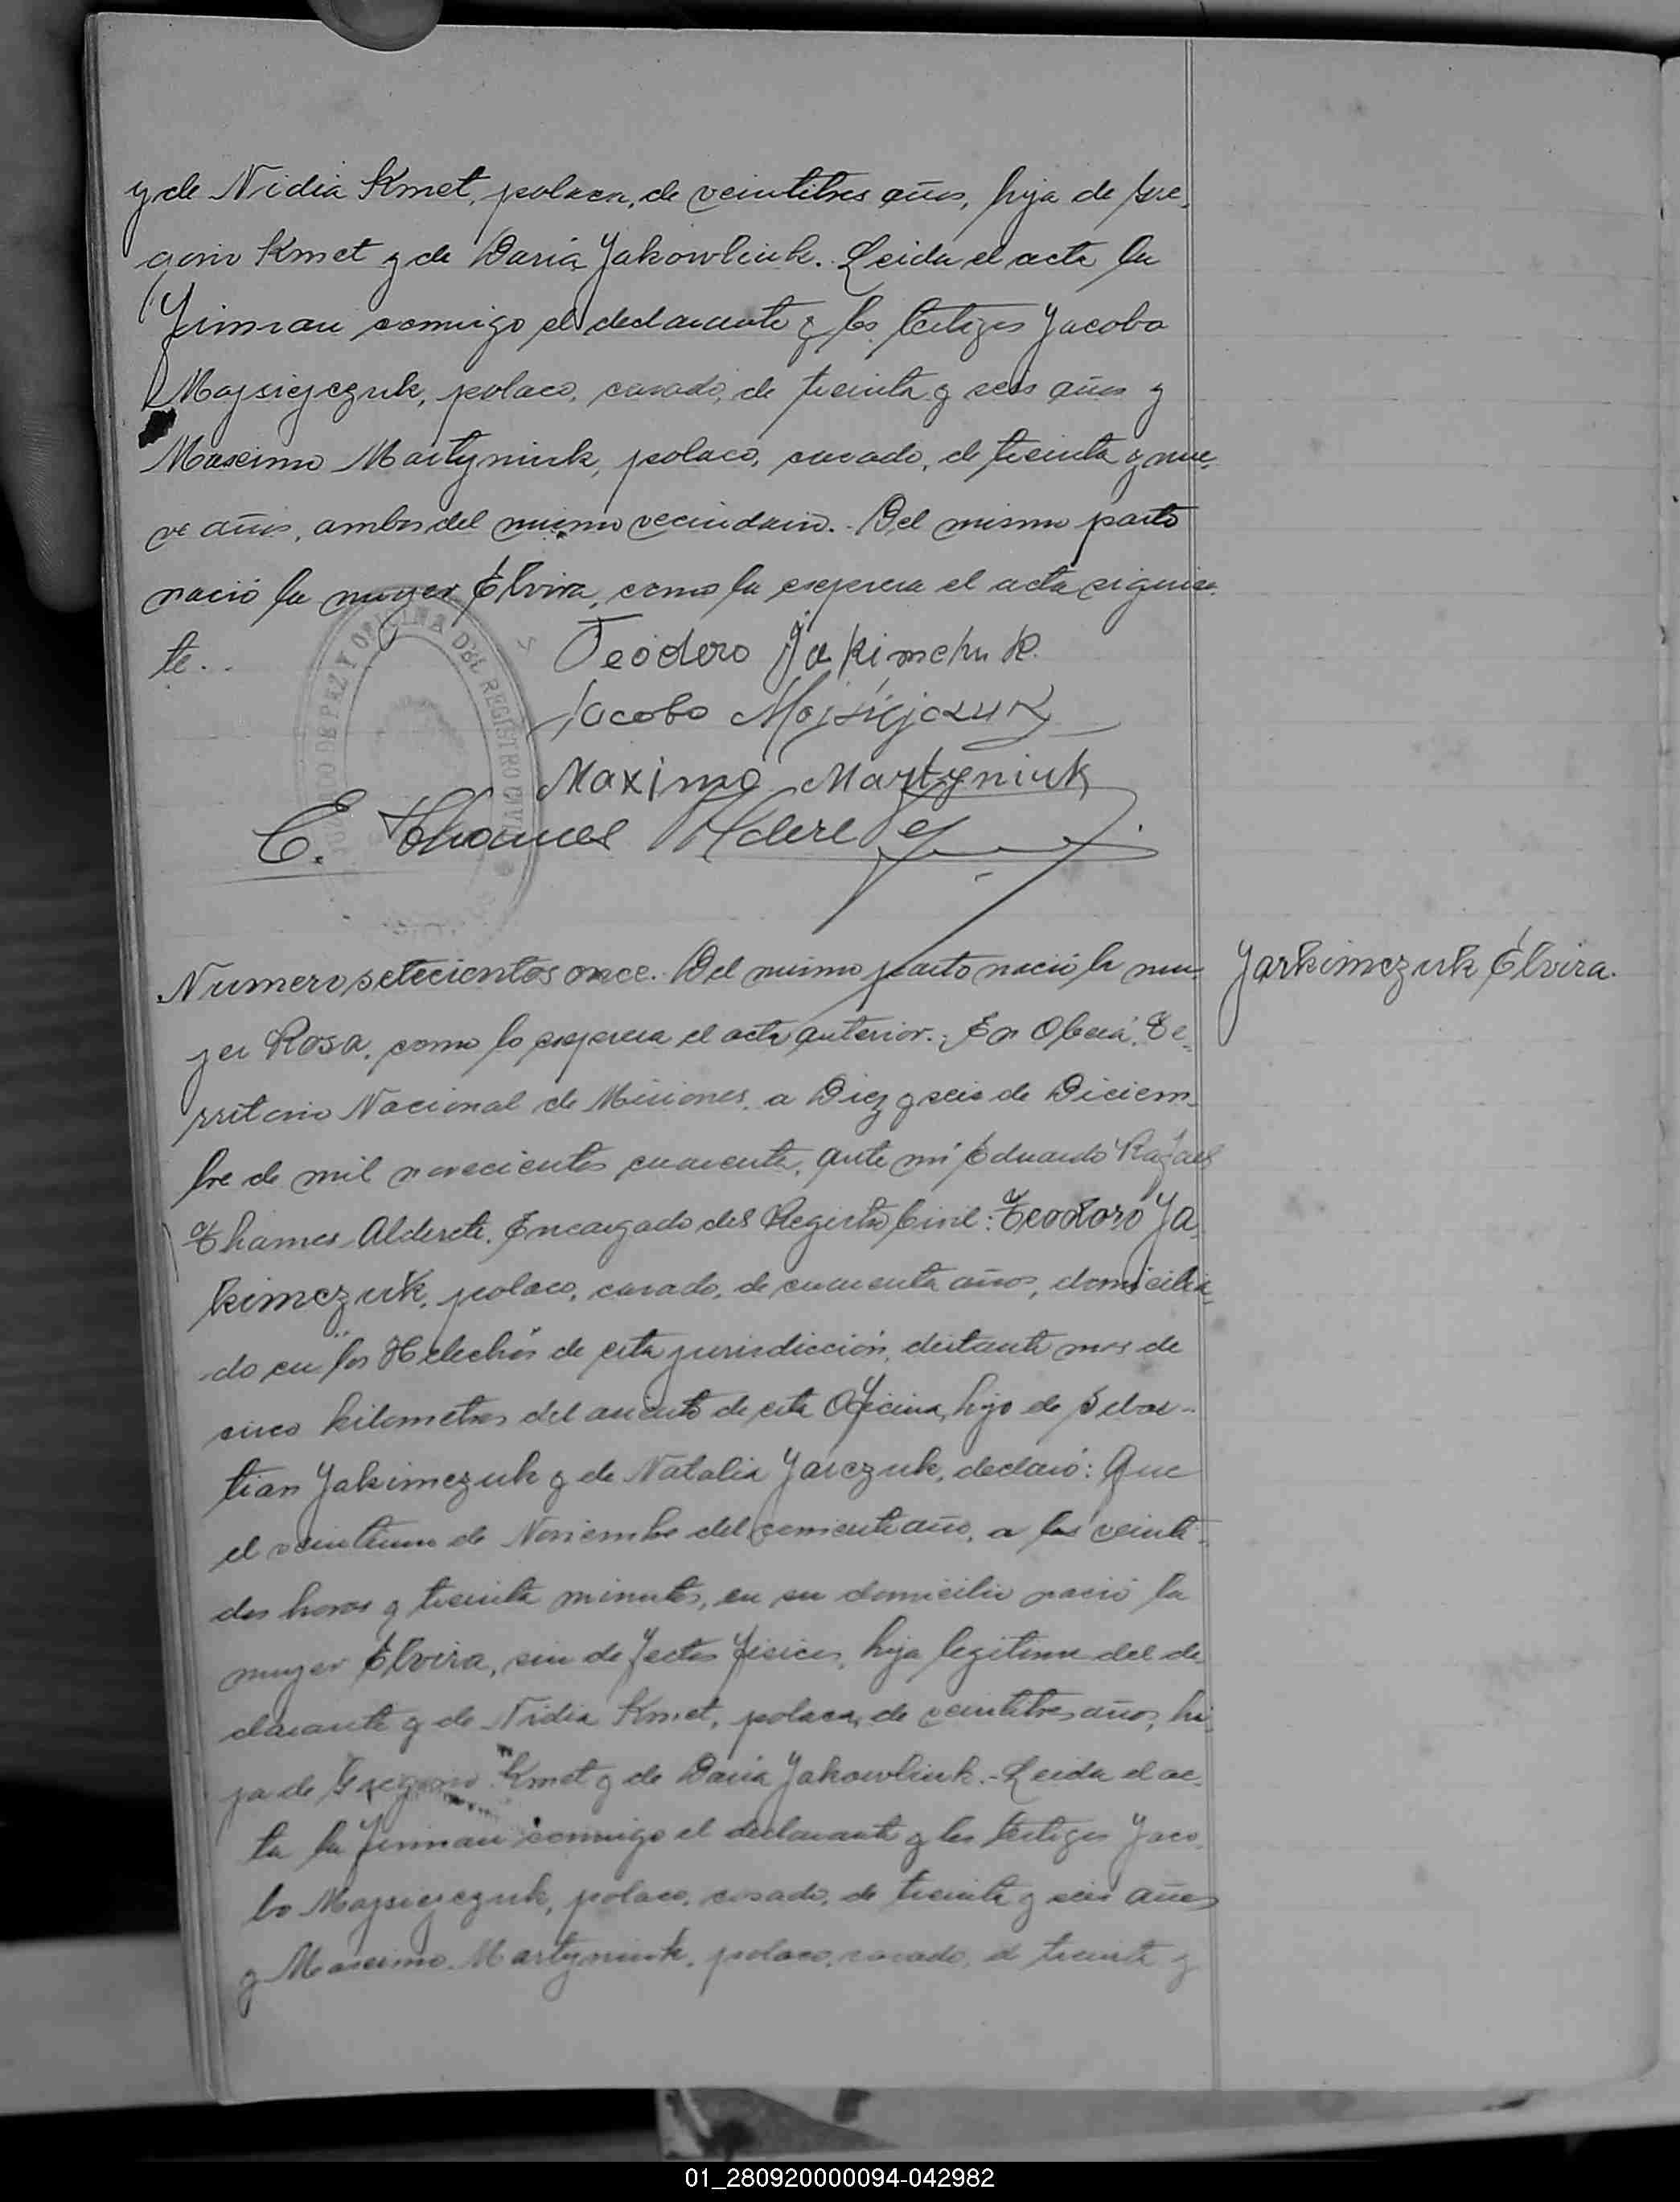 y de Nidia Kmet, polaca, de veintitres años, hija de Gre-
gorio Kmet y de Daria Yakowliuk. Leida el acta la
firman conmigo el declarante y los testigos Jacobo
Mojsiejczuk, polaco, casado, de treinta y seis años y
Maximo Martyniuk, polaco, casado, de treinta y nue-
ve años, ambos del mismo vecindario.- Del mismo parto
nació la mujer Elvira, como lo expresa el acta siguien-
te..
JUZGADO DE PAZ Y OFICINA DEL REGISTRO CIVIL
Teodoro Jakimchuk.
Jacobo Mojsiejczuk
Maximo Martyniuk
E. Thames Alderete
Numero setecientos once.- Del mismo parto nació la mu-
jer Rosa, como lo expresa el acta anterior.- En Oberá, Te-
rritorio Nacional de Misiones, a Diez y seis de Diciem-
bre de mil novecientos cuarenta, ante mi Eduardo Rafael
Thames Alderete, Encargado del Registro Civil: Teodoro Ja-
kimczuk, polaco, casado, de cuarenta años, domicilia-
do en "los Helechos" de esta jurisdicción, distante mas de
cinco kilometros del asiento de esta Oficina, hijo de Sebas-
tian Yakimczuk y de Natalia Jarczuk, declaró: Que
el veintiuno de Noviembre del corriente año, a las veinti-
dos horas y treinta minutos, en su domicilio nació la
mujer Elvira, sin defectos fisicos, hija legitima del de-
clarante y de Nidia Kmet, polaca, de veintitres años, hi-
ja de Gregorio Kmet y de Daria Yakowliuk.- Leida el ac-
ta la firman conmigo el declarante y los testigos Jaco-
bo Mojsiejczuk, polaco, casado, de treinta y seis años
y Maximo Martyniuk, polaco, casado, de treinta y
Jarkimczuk Elvira.
01_280920000094-042982